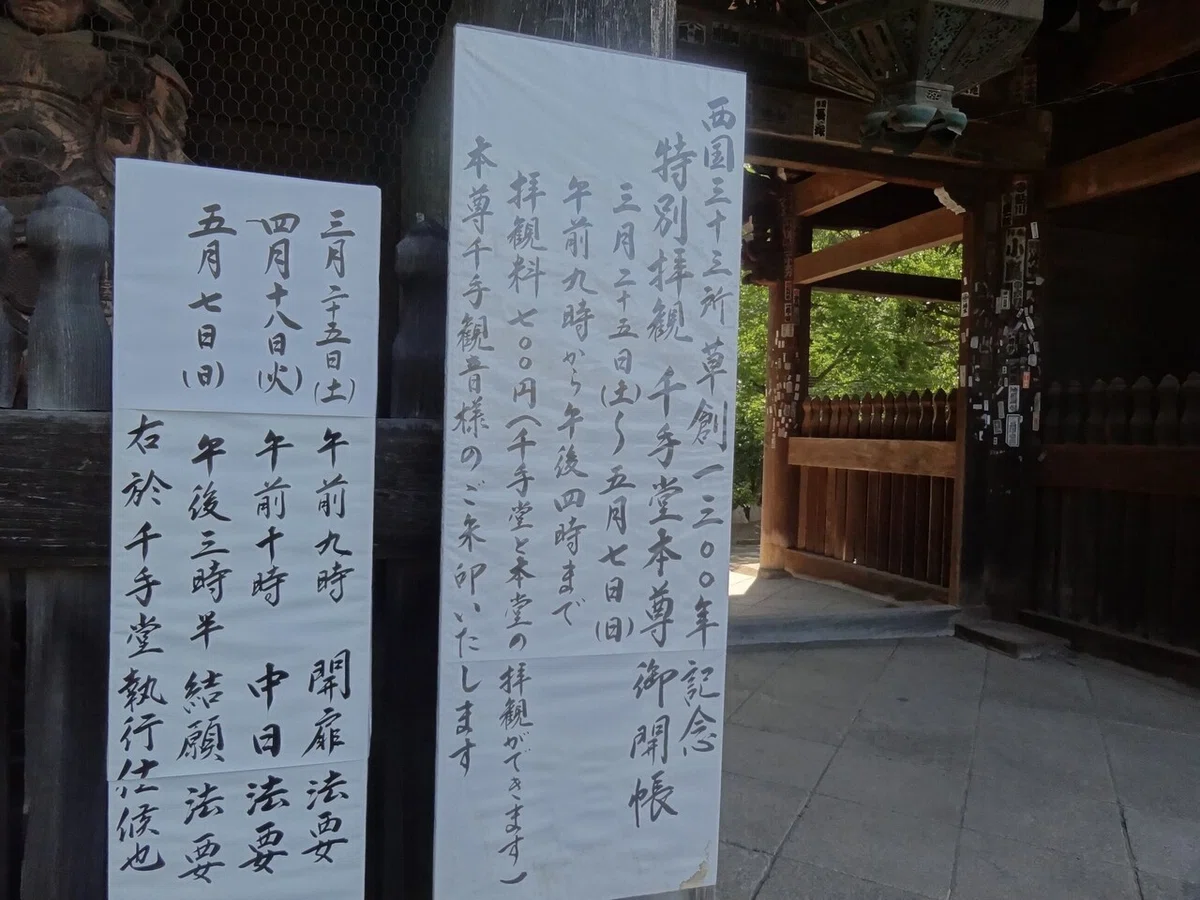 西国三十三所 草創一三〇〇年 記念
特別拝観 千手堂本尊 御開帳
三月二十五日(土)〜五月七日(日)
午前九時から午後四時まで
拝観料七〇〇円(千手堂と本堂の拝観ができます)
本尊千手観音様のご朱印いたします
三月二十五日(土) 午前九時 開扉法要
四月十八日(火) 午前十時 中日法要
五月七日(日) 午後三時半 結願法要
右於千手堂執行仕候也